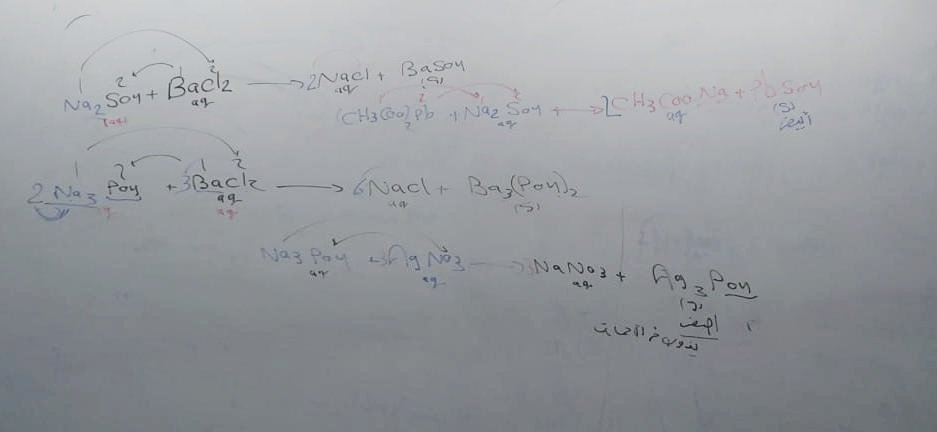 Na2SO4 + BaCl2 → 2NaCl + BaSO4
(aq) aq aq (s)
(CH3COO)2Pb + Na2SO4 → 2CH3COONa + PbSO4
aq aq (s)
ابيض
2Na3PO4 + 3BaCl2 → 6NaCl + Ba3(PO4)2
aq aq aq (s)
Na3PO4 + 3AgNO3 → 3NaNO3 + Ag3PO4
aq aq aq (s)
اصفر